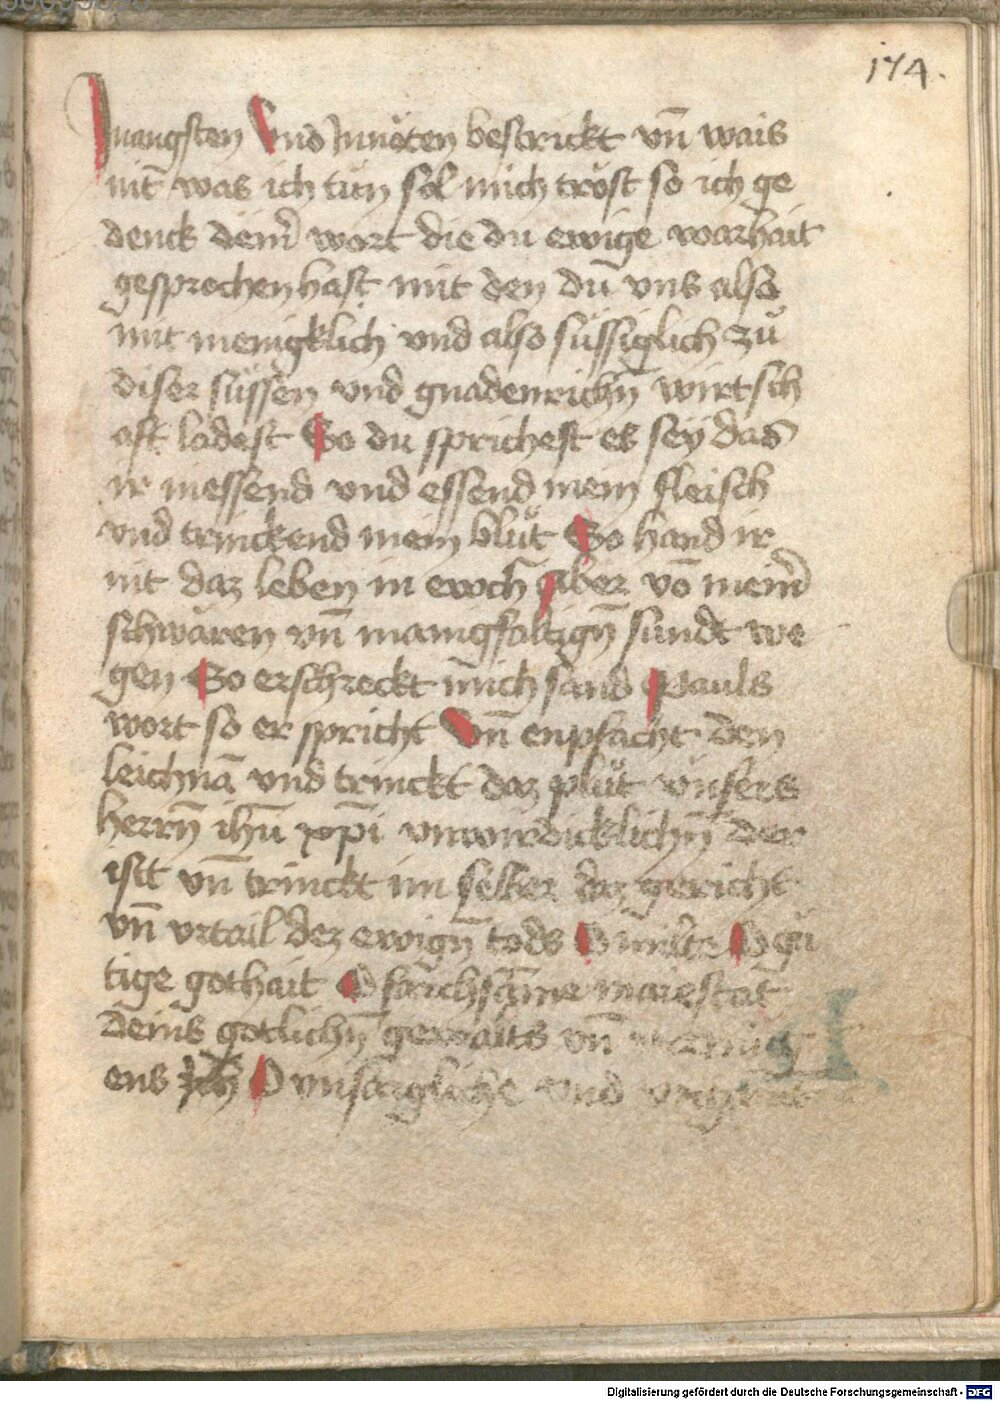 174.
Inangsten Vnd Innöten bestrickt vn̄ wais
nit was ich tůn sol mich tröst so ich ge
denck deim̄ wort die du ewige warhait
gesprochen hast mit den du vns also
mit menigklich vnd also süssiglich zů
diser süssen vnd gnadenrichn̄ wirtsch
aft ladest So du sprichest es sey das
ir niessend vnd essend mein fleisch
vnd trinckend mein blůt So hand ir
nit daz leben in ewch Aber vō meim̄
schwären vn̄ manigfaltign̄ sündt we
gen So erschreckt mich sand Pauls
wort so er spricht Vn̄ enpfacht den
leichnā vnd trinckt daz plůt vnsers
herrn̄ ihū xp̄i vnwirdicklichn̄ der
isst vn̄ trinckt im selber daz gericht
vn̄ vrtail dez ewign̄ tods O milte O gü
tige gothait O forichsāme maiestat
deins gotlichn̄ gewalts vn̄
ens Ich O vnsagliche vnd
Digitalisierung gefördert durch die Deutsche Forschungsgemeinschaft - DFG